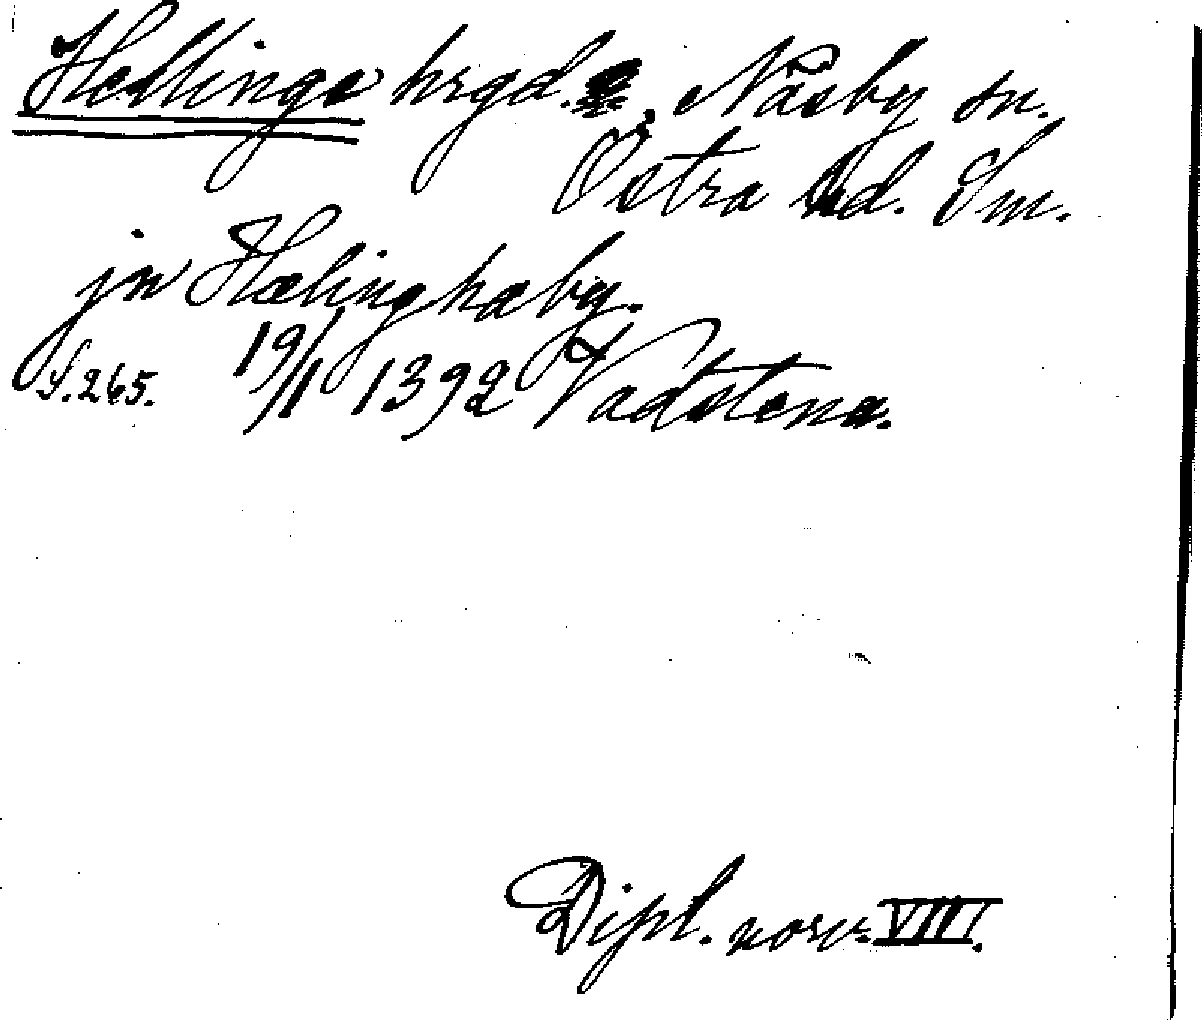 Hellinge hrgd., Näsby sn.
Östra hd. Sm.
jn Hælinghaby.
S. 265. 19/1 1392 Vadstena.
Dipl. norv. VIII.